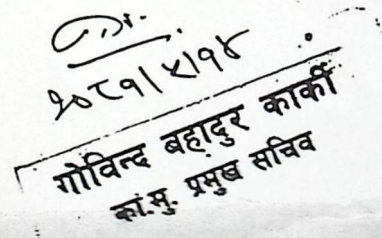 २०८१।५।१४
गोविन्द बहादुर कार्की
का.मु. प्रमुख सचिव